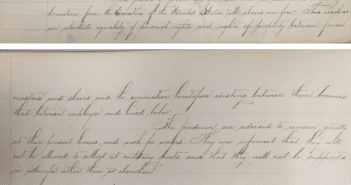 Proclamation from the Executive of the United States "all slaves are free." This involves
an absolute equality of personal rights and rights of property between former
masters and slaves and the connection heretofore existing between them becomes
that between employer and hired labor.
The freedmen are advised to remain quietly
at their present homes, and work for wages. They are informed that they will
not be allowed to collect at military posts and that they will not be supported
in idleness either there or elsewhere